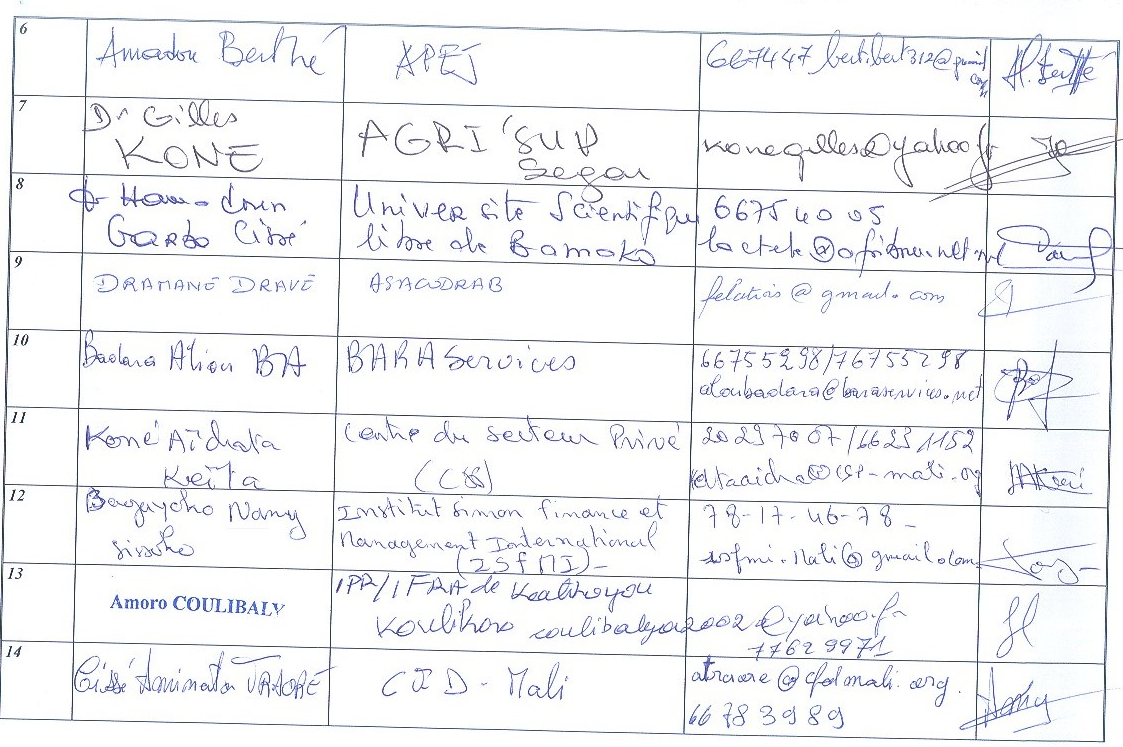 6
Amadou Berthé APEJ 667447 bertibert312@gmail
com
7
Dr Gilles
KONE
AGRI'SUP
Segou
konegilles@yahoo.fr
8
Garba Cissé
Université Scientifique
libre de Bamako
66754005
9
DRAMANE DRAVÉ ASACODRAB
@gmail.com
10
Badara Aliou BA BARA Services
66755298/76755298
alioubadara@baraservices.net
11
Koné Aïchata
Keïta
Centre du Secteur Privé
20297007/66231152
keitaaicha@csp-mali.org
12
Bagayoko Nany
Sissoko
Institut Simon finance et
Management International
(ISFMI)-
78-17-46-78-
isfmi.mali@gmail.com
13
Amoro COULIBALY
IPR/IFRA de
Koulikoro coulibalya2002@yahoo.fr
77629971
14
Cissé Aminata TRAORÉ CFD-Mali
atraore@cfdmali.org.
66783989